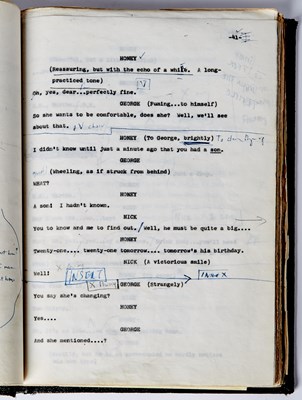 -41-
HONEY
(Reassuring, but with the echo of a whine. A long-
practiced tone)
Oh, yes, dear...perfectly fine.
GEORGE (Fuming...to himself)
So she wants to be comfortable, does she? Well, we'll see
about that.
HONEY (To George, brightly)
I didn't know until just a minute ago that you had a son.
GEORGE
(Wheeling, as if struck from behind)
WHAT?
HONEY
A son! I hadn't known.
NICK
You to know and me to find out. Well, he must be quite a big....
HONEY
Twenty-one.... twenty-one tomorrow.... tomorrow's his birthday.
NICK (A victorious smile)
Well!
INSERT
GEORGE (Strangely)
You say she's changing?
HONEY
Yes....
GEORGE
And she mentioned....?